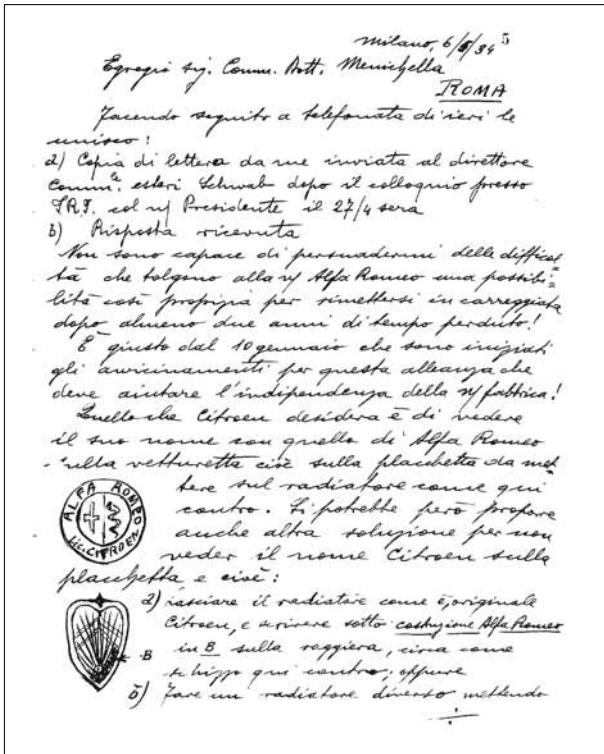 Milano, 6/5/34 5
Egregio sig. Comm. Dott. Menichella
ROMA
Facendo seguito a telefonata di ieri le
unisco:
a) Copia di lettera da me inviata al direttore
Comm.le esteri Schwab dopo il colloquio presso
I.R.I. col n/ Presidente il 27/4 sera
b) Risposta ricevuta
Non sono capace di persuadermi delle difficol=
tà che tolgono alla n/ Alfa Romeo una possibi=
lità così propizia per rimettersi in carreggiata
dopo almeno due anni di tempo perduto!
È giusto dal 10 gennaio che sono iniziati
gli avvicinamenti per questa alleanza che
deve aiutare l'indipendenza della n/ fabbrica!
Quello che Citroen desidera è di vedere
il suo nome con quello di Alfa Romeo
sulla vetturetta cioè sulla placchetta da met
tere sul radiatore come qui
contro. Si potrebbe però proporre
anche altra soluzione per non
veder il nome Citroen sulla
placchetta, e cioè:
ALFA ROMEO
Lic. CITROEN
a) lasciare il radiatore come è, originale
Citroen, e scrivere sotto costruzione Alfa Romeo
in B sulla raggiera, circa come
schizzo qui contro; oppure
B
b) fare un radiatore diverso mettendo